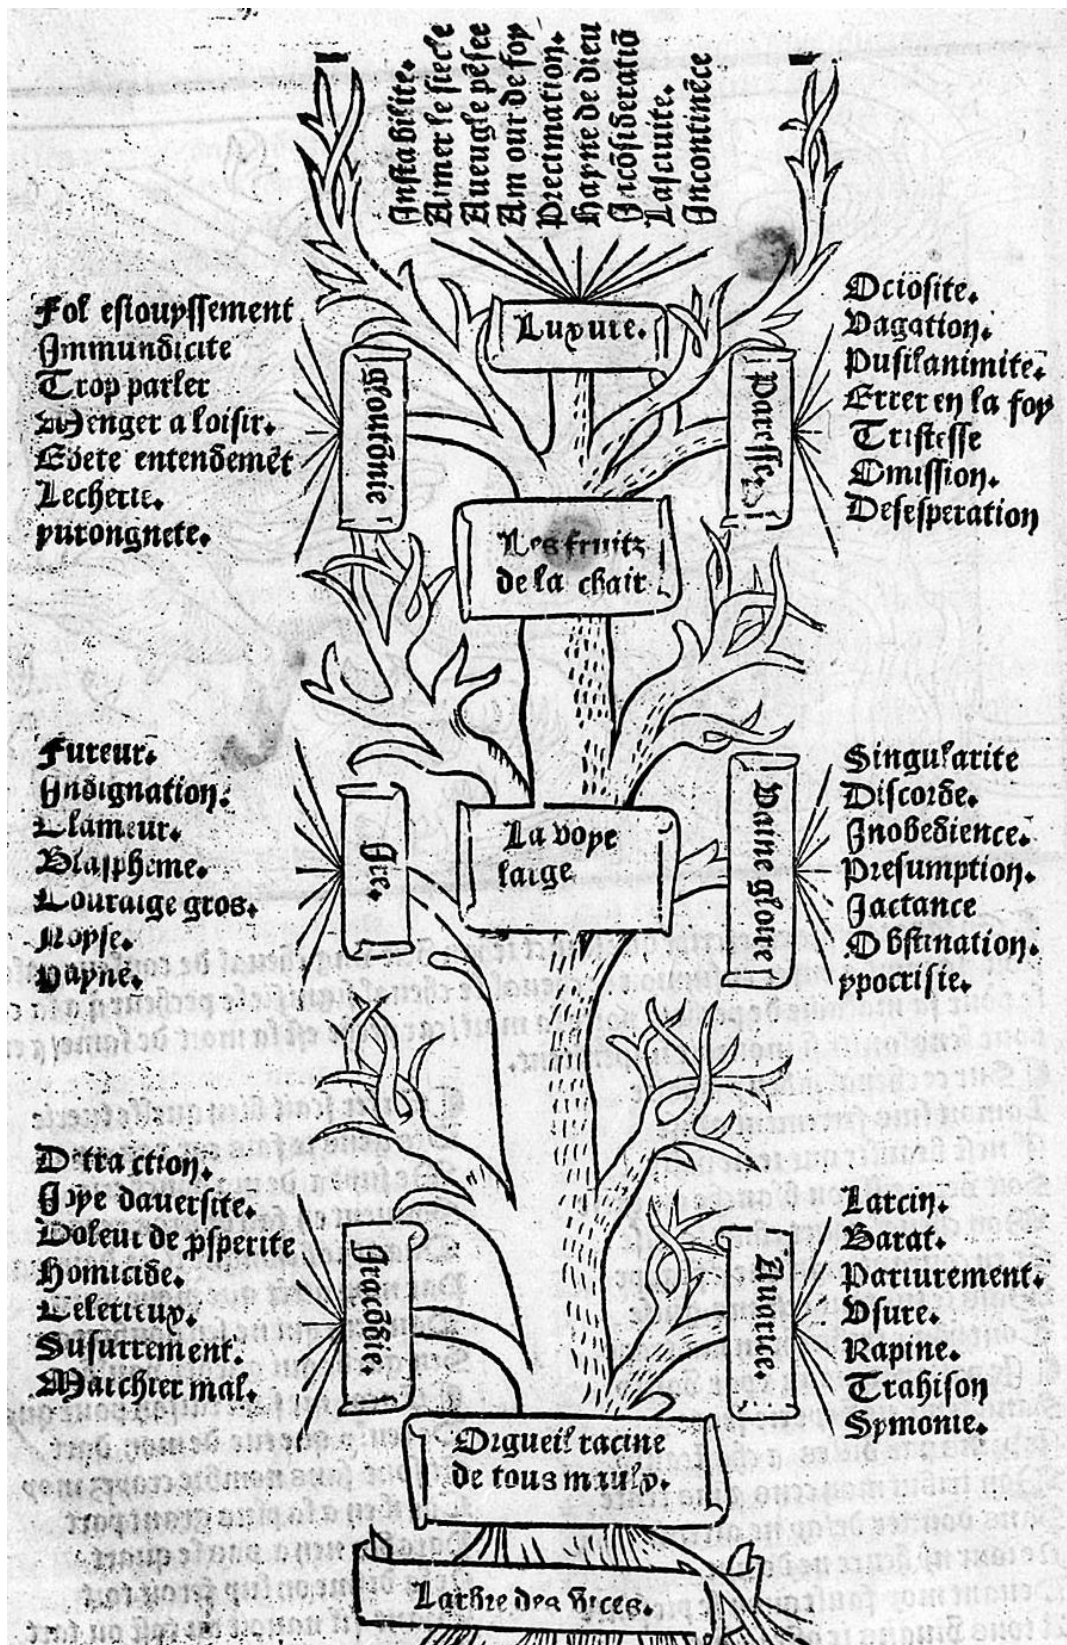 Instabilite.
Aimer le siecle
Aueugle pẽsee
Am our de soy
Precimation.
Hayne de dieu
Incõsideratiõ
Lasciuite.
Incontinẽce
Luxure.
Fol esiouyssement
Immundicite
Trop parler
Menger a loisir.
Ebete entendemẽt
Lecherie.
yurongnete.
gloutõnie
Paresse.
Ociosite.
Vagation.
Pusilanimite.
Errer en la foy
Tristesse
Omission.
Desesperation
Les fruitz
de la chair
Fureur.
Indignation.
Clameur.
Blaspheme.
Couraige gros.
Noyse.
Hayne.
Ire.
La voye
large
Vaine gloire
Singularite
Discorde.
Inobedience.
Presumption.
Jactance
Obstination.
ypocrisie.
Detraction.
Ioye dauersite.
Doleur de ꝓsperite
Homicide.
Susurrement.
Marchier mal.
Iracõdie.
Auarice.
Larcin.
Barat.
Pariurement.
Vsure.
Rapine.
Trahison
Symonie.
Orgueil racine
de tous maulx.
Larbre des vices.